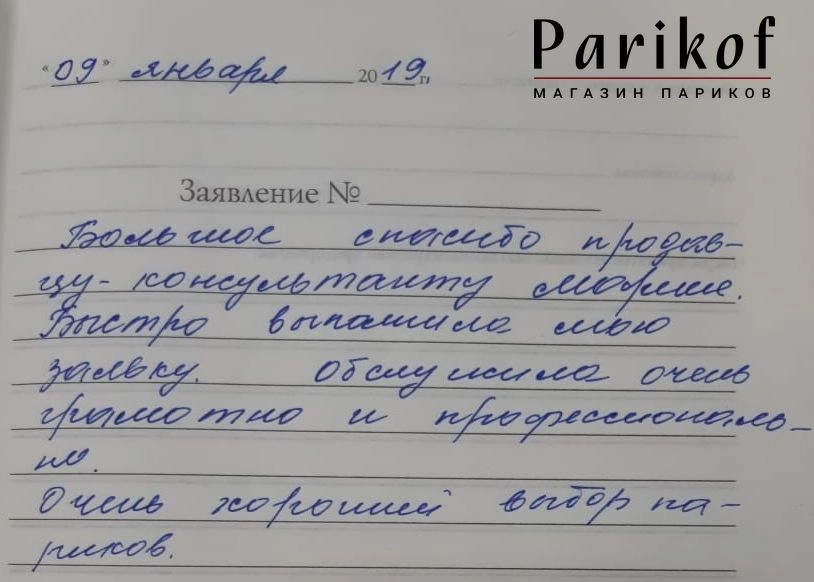 Parikof
МАГАЗИН ПАРИКОВ
"09" января 2019 г.
Заявление №
Большое спасибо продав-
цу-консультанту Марине.
Быстро выполнила мою
заявку. Обслужила очень
грамотно и профессиональ-
но.
Очень хороший выбор па-
риков.